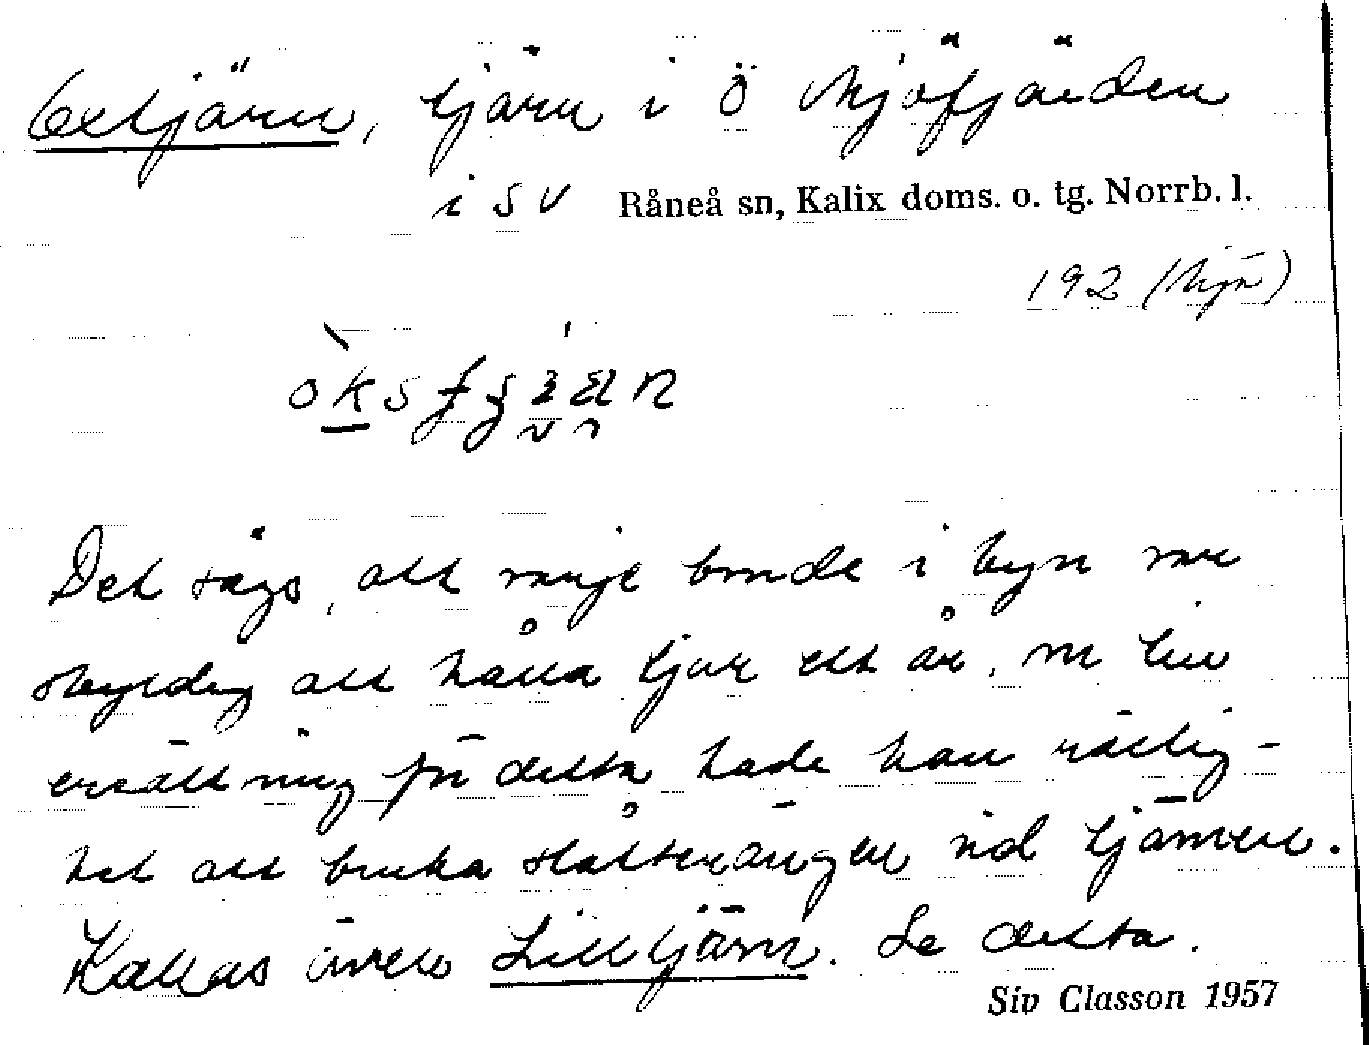 Oxtjärn, tjärn i Ö Mjöfjärden
i SV Råneå sn, Kalix doms. o. tg. Norrb. l.
192 (Mjn)
Det sägs, att varje bonde i byn var
skyldig att hålla tjur ett år, som
ersättning för detta hade han rättig-
het att bruka slåtterängen vid tjärnen.
Kallas även Lilltjärn. Se detta.
Siv Classon 1957